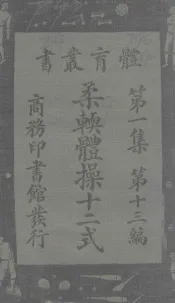 體育叢書
第一集 第十三編
柔輭體操十二式
商務印書館發行